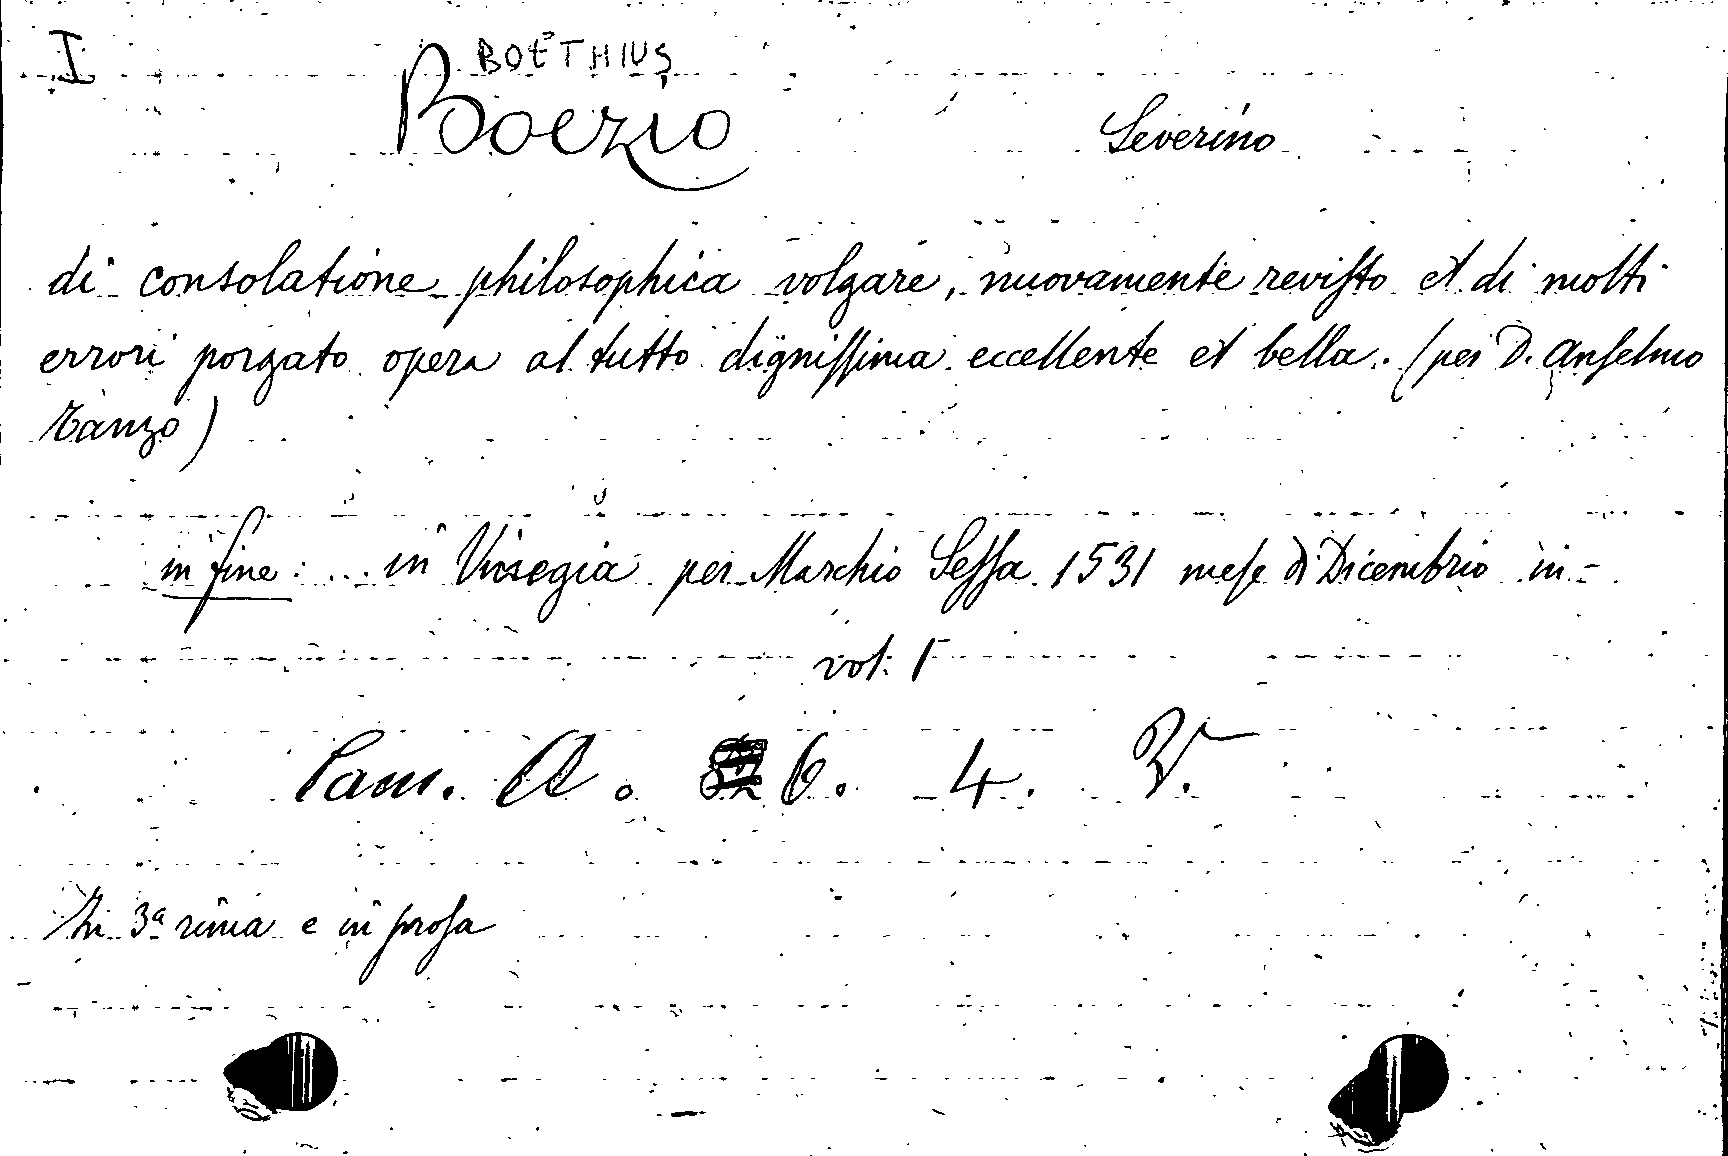 I
BOETHIUS
Boezio Severino
di consolatione philosophica volgare, nuovamente revisto et di molti
errori porgato opera al tutto dignissima eccellente et bella. (per D. Anselmo
Tanzo)
in fine: ... in Vinegia per Marchio Sessa 1531 mese di Dicembrio in-
vol: 1
Cam. A. 6. 4. V.
In 3ª rima e in prosa